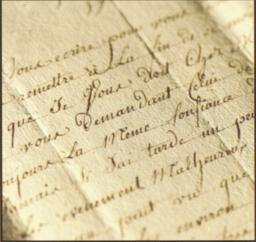 vous ecrire pour vous
remettre à La fin de
que Je vous Doit Cher
vous Demandant Celui de
toujours La Meme Confiance
Jamais Si J'ai tarde un peu
evenement Malheureux
peut vu que
environ